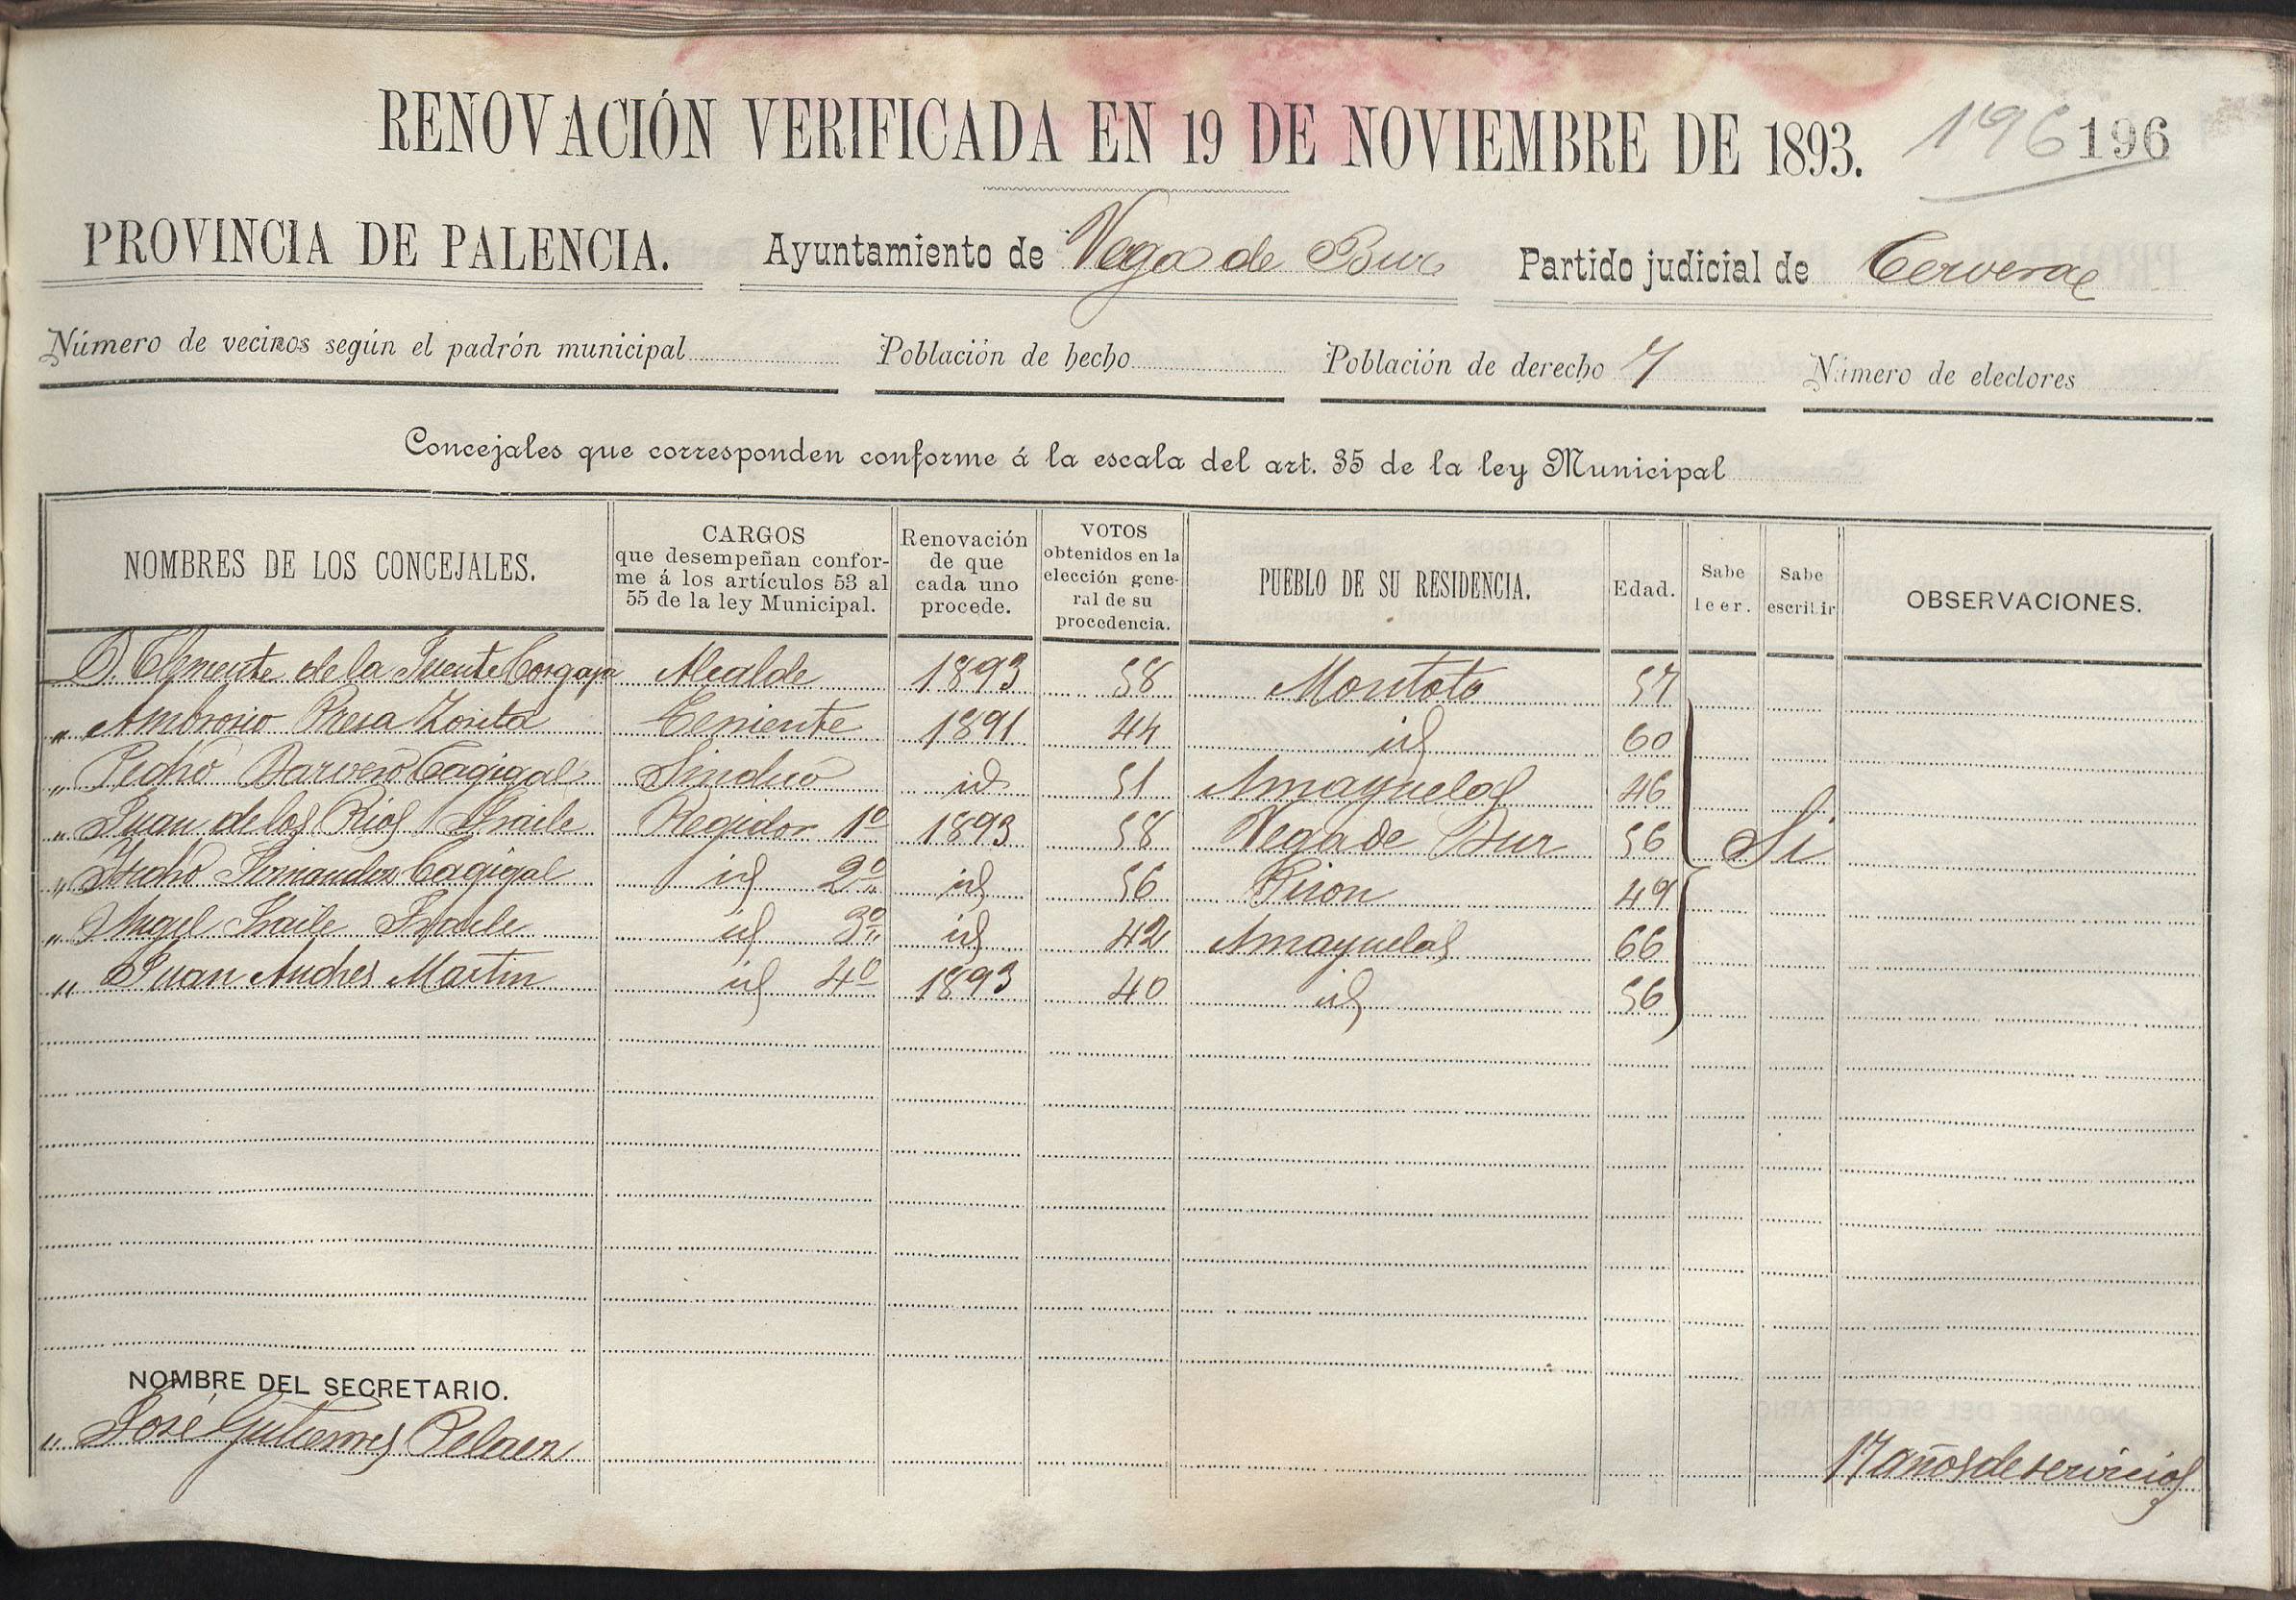 RENOVACIÓN VERIFICADA EN 19 DE NOVIEMBRE DE 1893. 196 196
PROVINCIA DE PALENCIA. Ayuntamiento de Vega de Bur Partido judicial de Cervera
Número de vecinos según el padrón municipal Población de hecho Población de derecho 7 Número de electores
Concejales que corresponden conforme á la escala del art. 35 de la ley Municipal
NOMBRES DE LOS CONCEJALES. CARGOS que desempeñan confor-me á los artículos 53 al 55 de la ley Municipal. Renovación de que cada uno procede. VOTOS obtenidos en la elección gene-ral de su procedencia. PUEBLO DE SU RESIDENCIA. Edad. Sabe leer. Sabe escribir OBSERVACIONES.
D. Clemente de la Fuente Alcalde 1893 58 Montoto 57
„ Ambrosio Presa Zorita Teniente 1891 44 id 60
„ Pedro Barvero Cagigal Sindico id 51 Amayuelas 46
„ Juan de los Rios Fraile Regidor 1º 1893 58 Vega de Bur 56 Si
„ Fernandez Cagigal id 2º id 56 Pison 49
„ Angel Fraile Fraile id 3º id 42 Amayuelas 66
„ Juan Andres Martin id 4º 1893 40 id 56
NOMBRE DEL SECRETARIO.
„ José Gutierres Pelaez 17 años de servicios